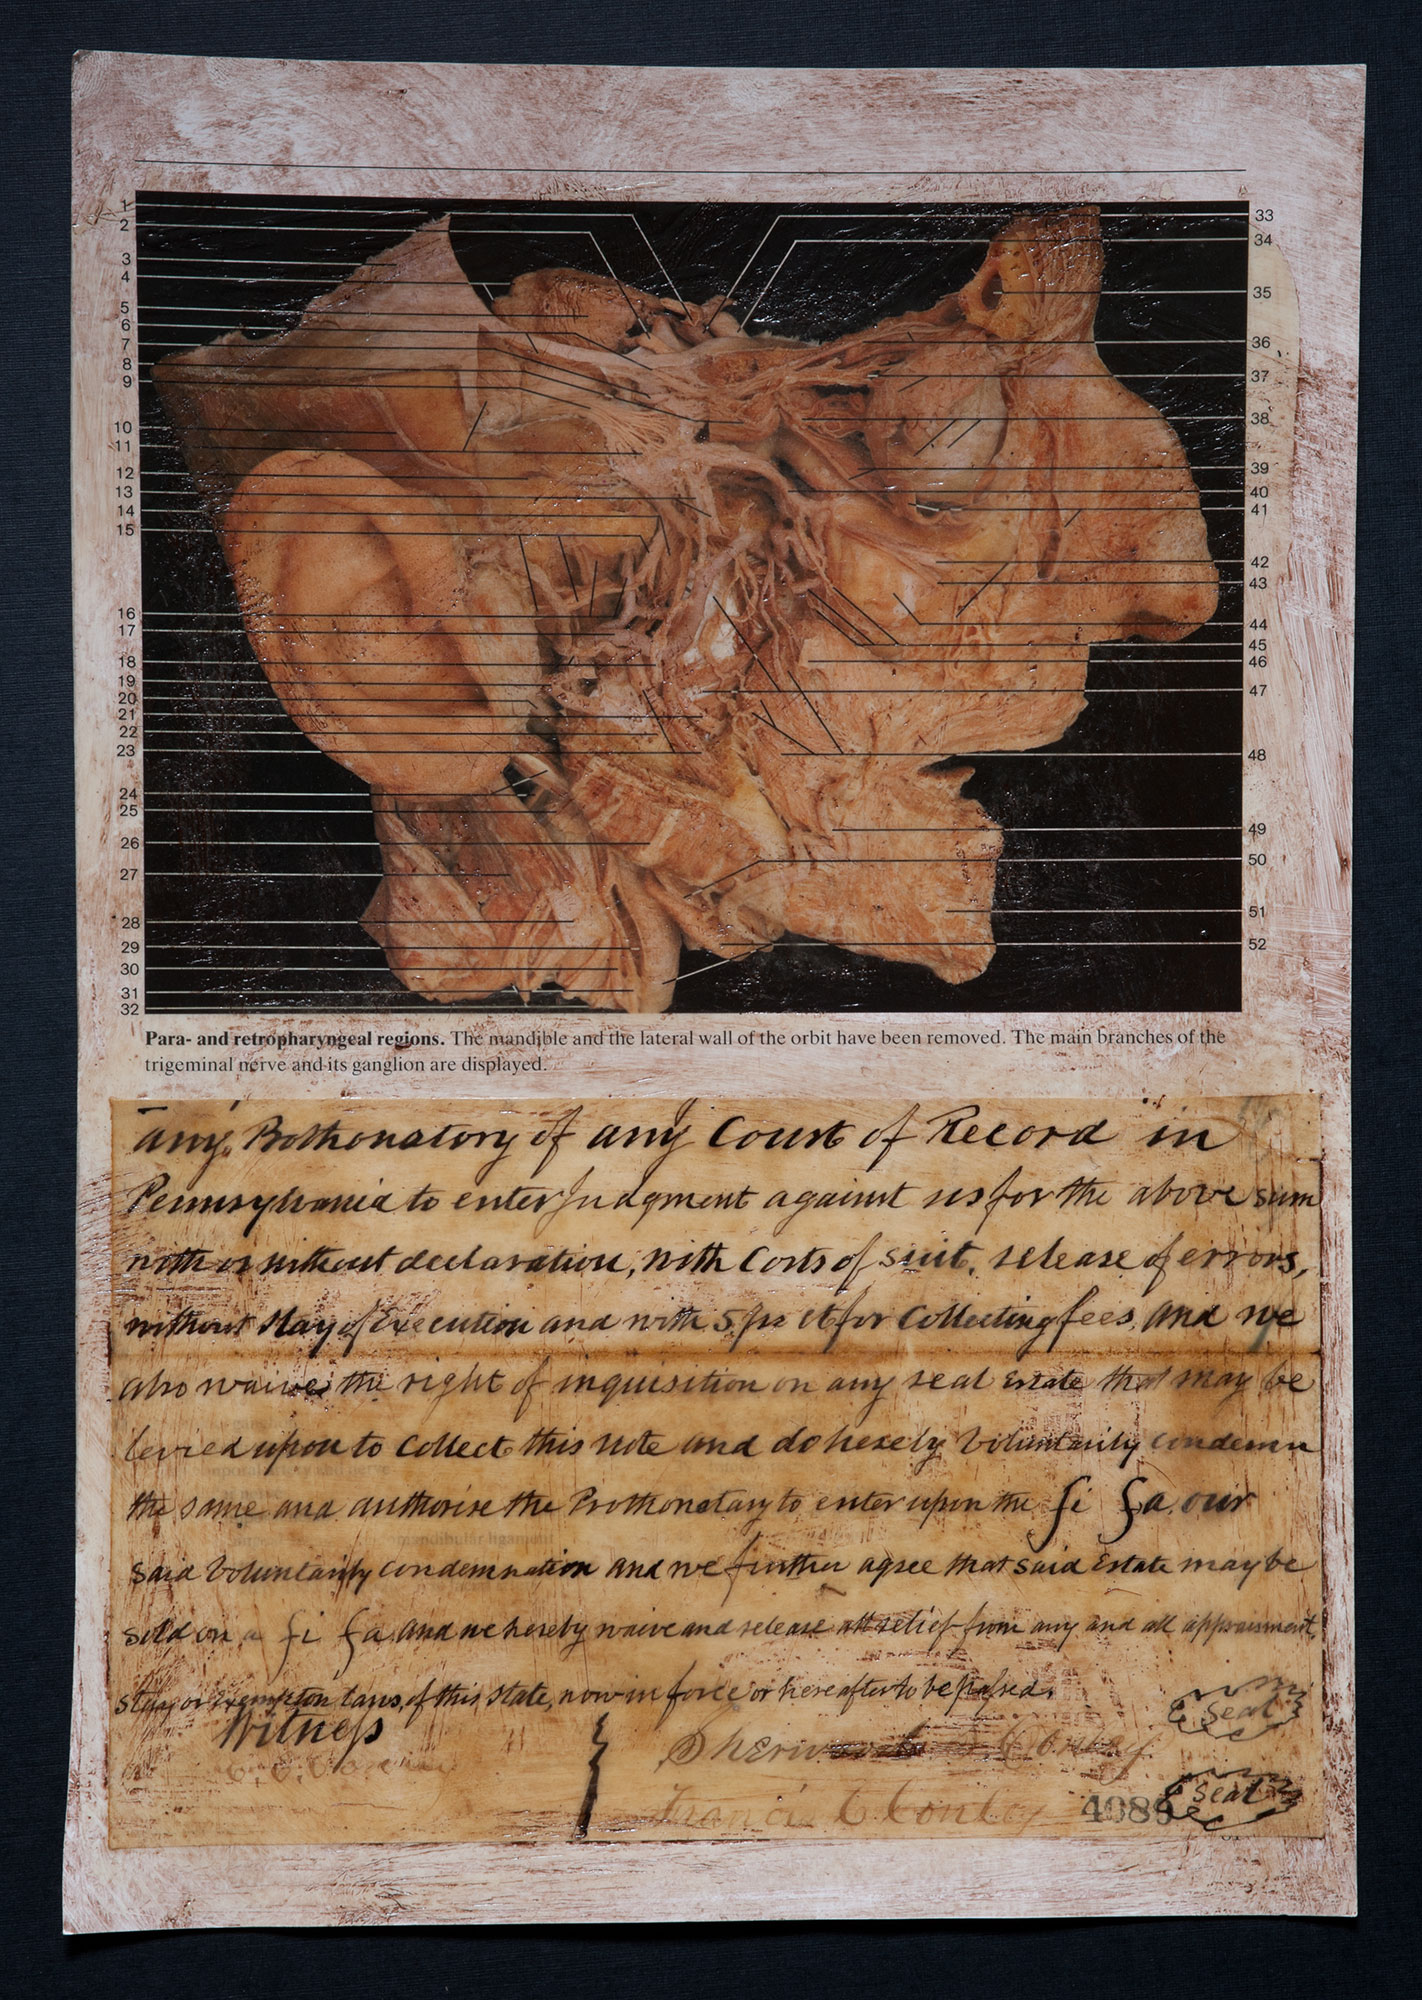 1
2
3
4
5
6
7
8
9
10
11
12
13
14
15
16
17
18
19
20
21
22
23
24
25
26
27
28
29
30
31
32
33
34
35
36
37
38
39
40
41
42
43
44
45
46
47
48
49
50
51
52
Para- and retropharyngeal regions. The mandible and the lateral wall of the orbit have been removed. The main branches of the
trigeminal nerve and its ganglion are displayed.
any Prothonatory of any Court of Record in
Pennsylvania to enter Judgment against us for the above sum
with or without declaration, with Costs of suit, release of errors,
without Stay of Execution and with 5 pr ct for Collecting fees, and we
also waive the right of inquisition on any real Estate that may be
levied upon to Collect this note and do hereby Voluntarily condemn
the same and authorise the Prothonotary to enter upon the fi fa our
said Voluntarily condemnation and we further agree that said Estate may be
sold on a fi fa, and we hereby waive and release all relief from any and all appraisment,
stay or Exemption laws, of this State, now in force or hereafter to be passed.
Witness
Seal
Conley
Francis C Conley
408
Seal